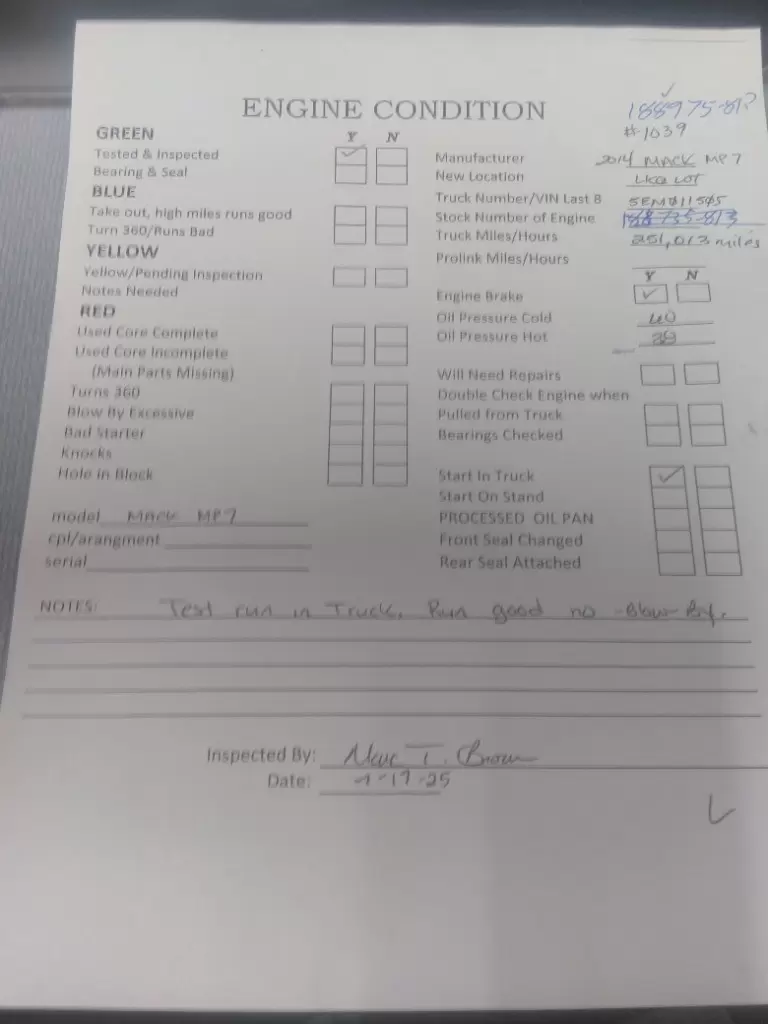 ENGINE CONDITION
188975-813
#1039
GREEN Y N
Tested & Inspected
Bearing & Seal
BLUE
Take out, high miles runs good
Turn 360/Runs Bad
YELLOW
Yellow/Pending Inspection
Notes Needed
RED
Used Core Complete
Used Core Incomplete
(Main Parts Missing)
Turns 360
Blow By Excessive
Bad Starter
Knocks
Hole in Block
model MACK MP7
cpl/arangment
serial
Manufacturer 2014 MACK MP7
New Location LKQ LOT
Truck Number/VIN Last 8
Stock Number of Engine
Truck Miles/Hours 251,013 miles
Prolink Miles/Hours
Y N
Engine Brake
Oil Pressure Cold 40
Oil Pressure Hot
Will Need Repairs
Double Check Engine when
Pulled from Truck
Bearings Checked
Start In Truck
Start On Stand
PROCESSED OIL PAN
Front Seal Changed
Rear Seal Attached
NOTES: Test run in Truck. Run good no Blow By.
Inspected By: T. Brown
Date: